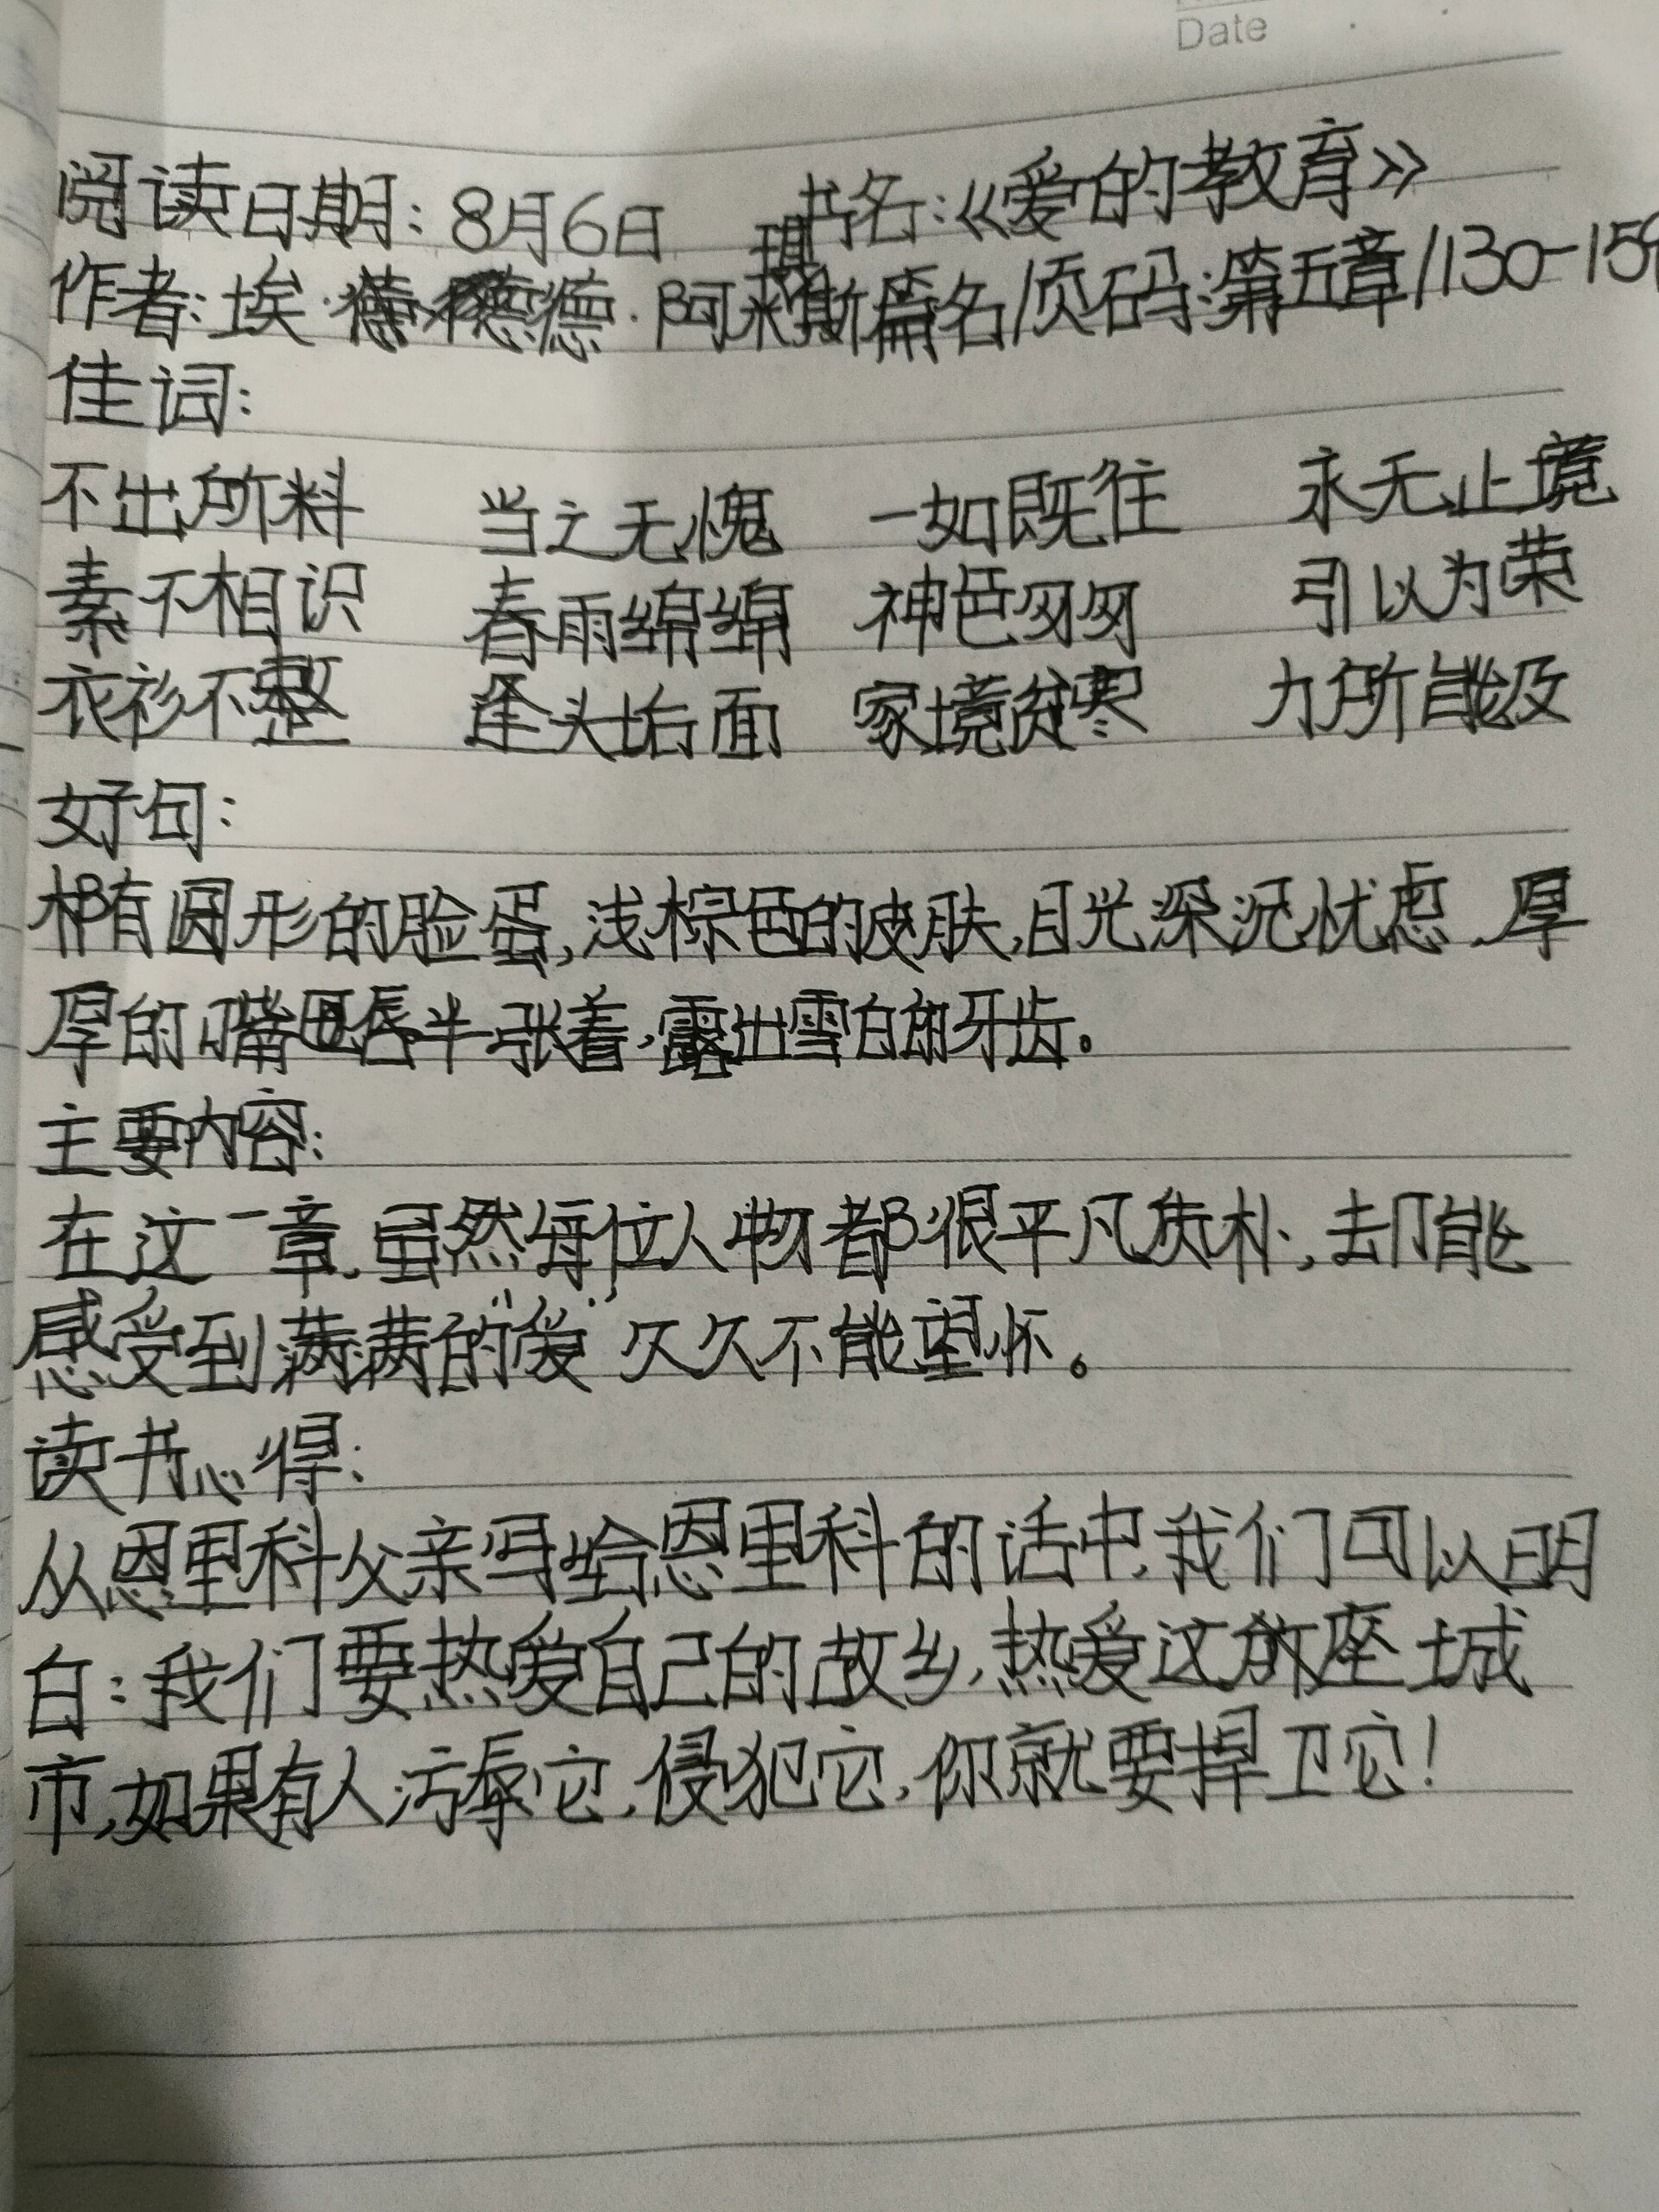 Date
阅读日期：8月6日 书名：《爱的教育》
作者：埃·德·德·阿米琪斯 篇名/页码：第五章/130-159
佳词：
不出所料 当之无愧 一如既往 永无止境
素不相识 春雨绵绵 神色匆匆 引以为荣
衣衫不整 蓬头垢面 家境贫寒 力所能及
好句：
有圆形的脸蛋，浅棕色的皮肤，目光深沉忧虑，厚
厚的嘴唇半张着，露出雪白的牙齿。
主要内容：
在这一章，虽然每位人物都很平凡质朴，却能
感受到满满的“爱”久久不能望怀。
读书心得：
从恩里科父亲写给恩里科的话中，我们可以明
白：我们要热爱自己的故乡，热爱这座城
市，如果有人污辱它，侵犯它，你就要捍卫它！